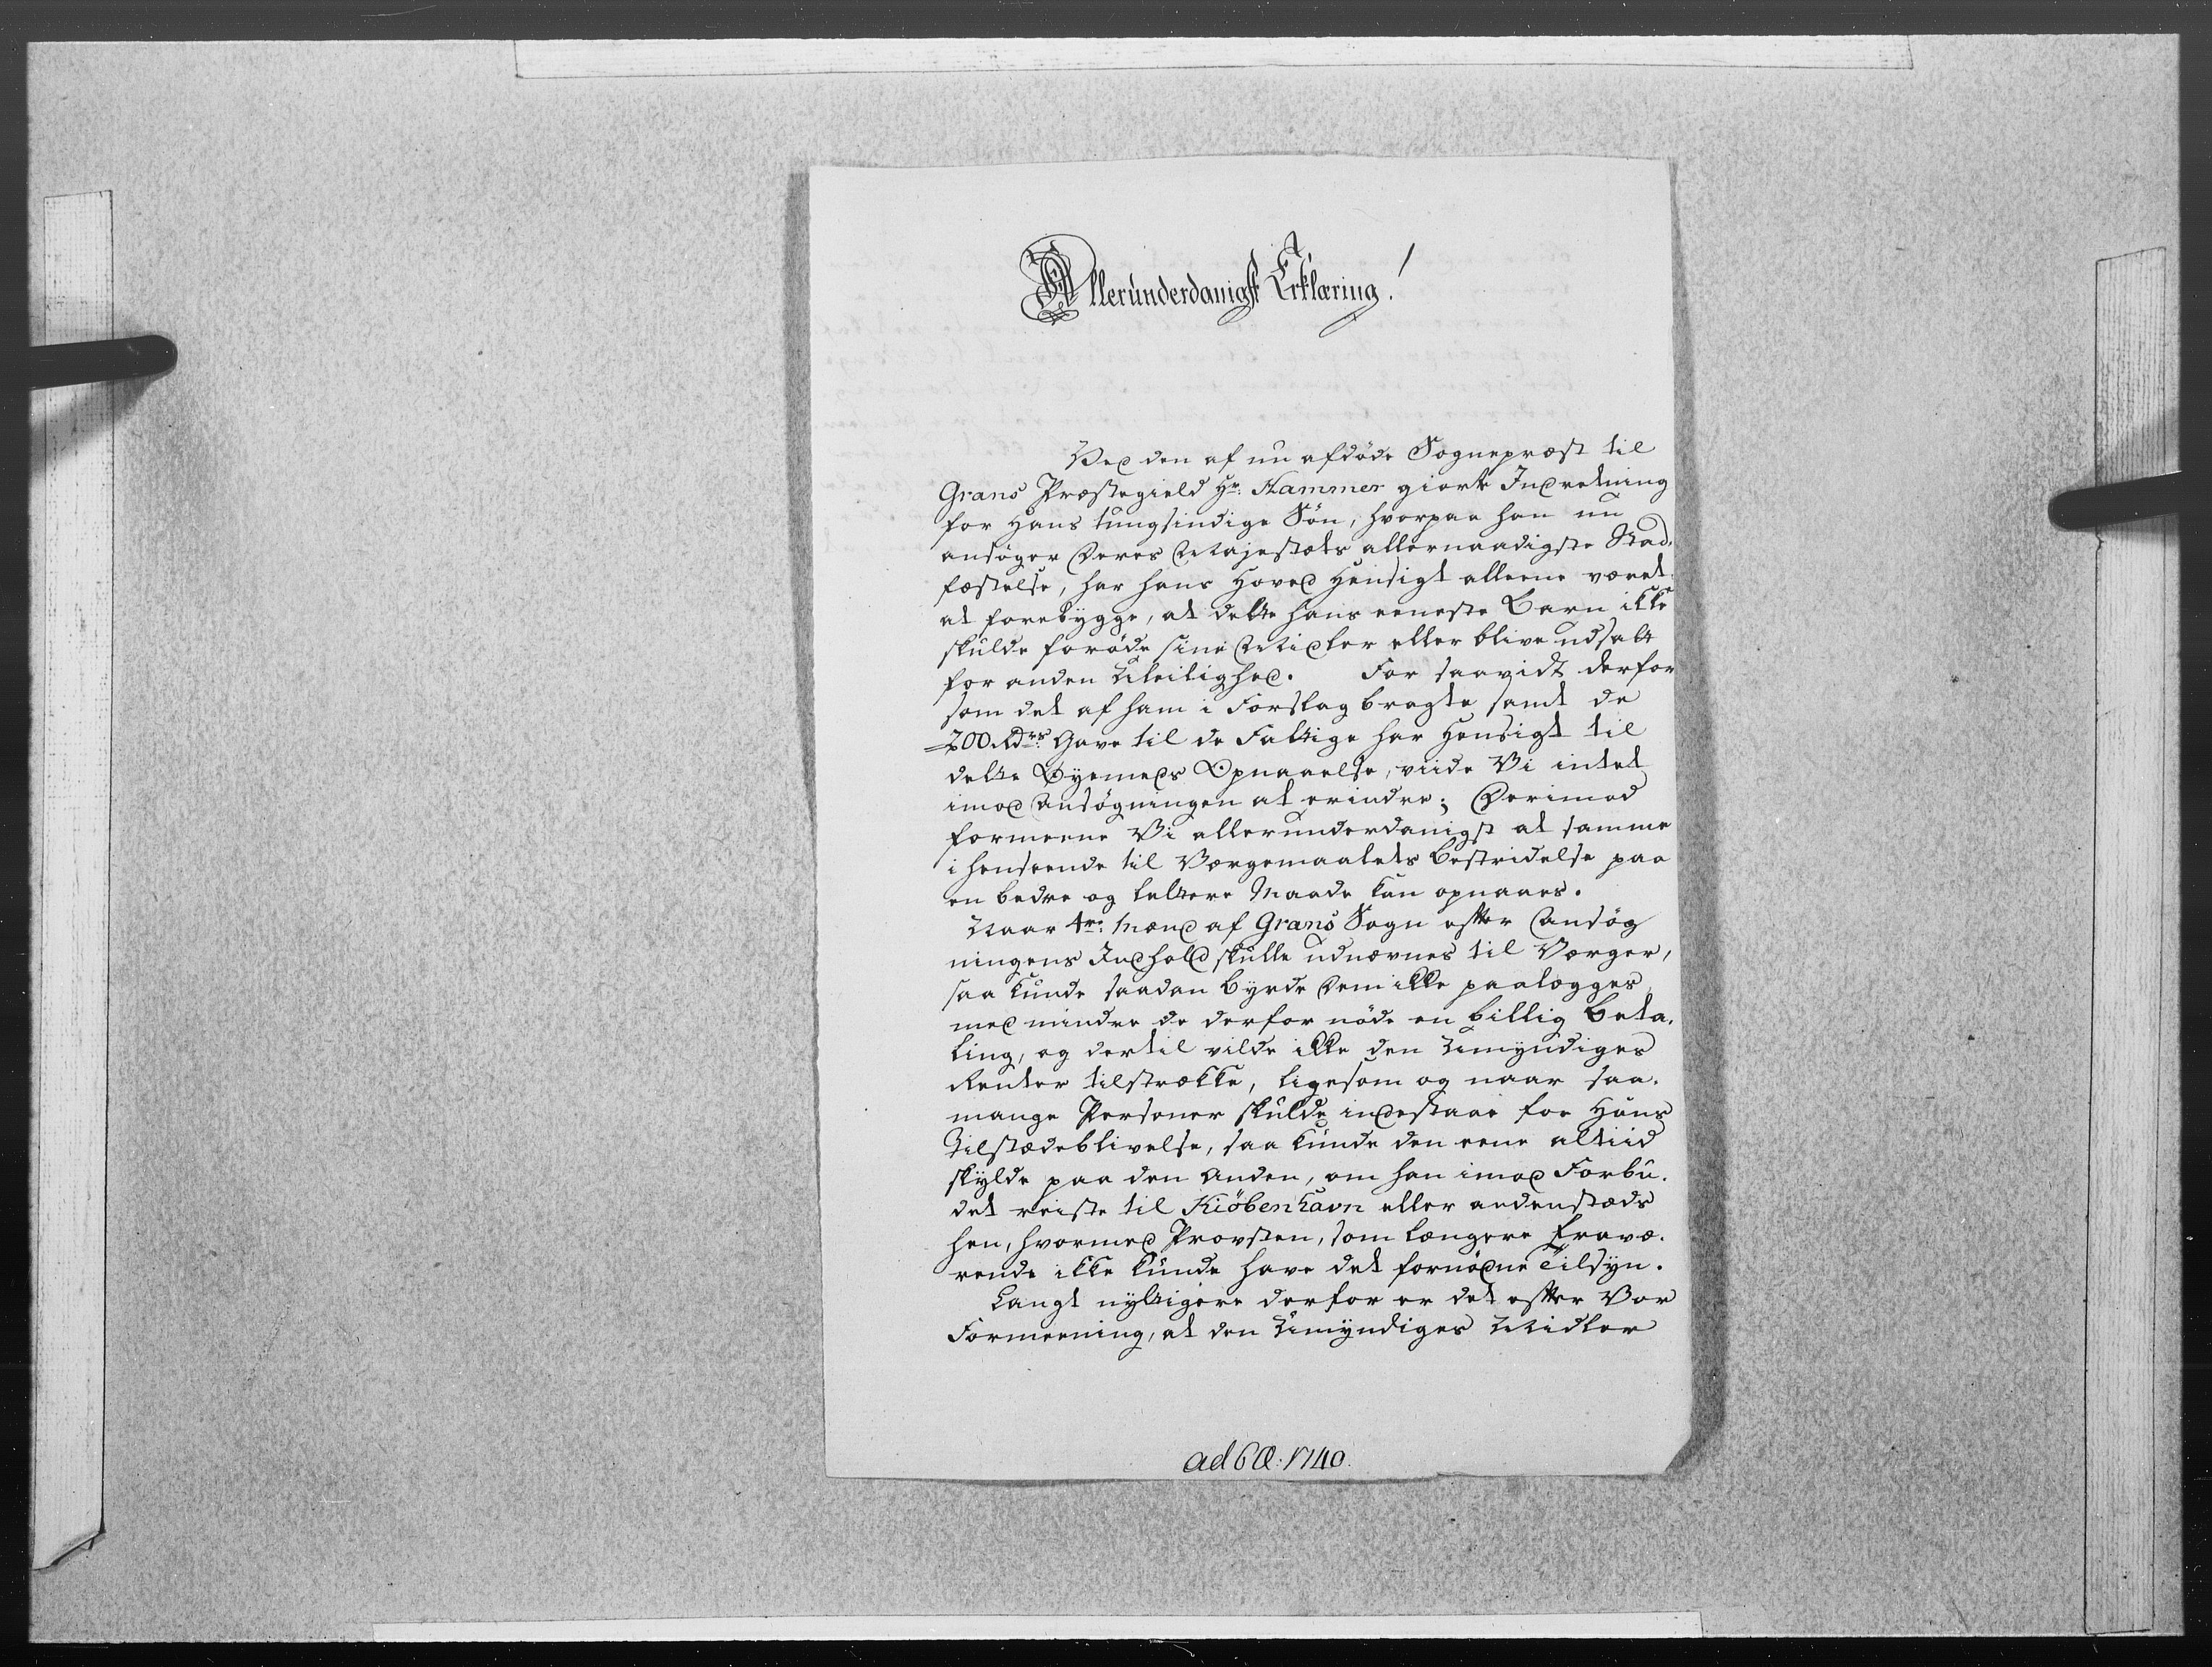 Allerunderdanigst Erklæring!
Ved den af nu afdöde Sognepræst til
Grans Præstegield Hr: Hammer giorte Indretning
for Hans tungsindige Sön, hvorpaa han nu
ansöger Deres Majestæts allernaadigste Stad,
fæstelse, har hans Hoved Hensigt alleene været
at forebygge, at dette hans eeneste Barn ikke
skulde foröde sine Midler eller blive udsatt
for anden Uleilighed. For saavidt derfor
som det af ham i Forslag bragte samt de
200 Rdrs: Gave til de Fattige har Hensigt til
dette Öyemeds Opnaaelse, viide Vi intet
imod Ansögningen at erindre; Derimod
formeene Vi allerunderdanigst at samme
i henseende til Værgemaalets Bestridelse paa
en bedre og lettere Maade kan opnaaes.
Naar 4re: Mænd af Grans Sogn efter Ansög
ningens Indhold skulle udnævnes til Værger,
saa kunde saadan Byrde dem ikke paalægges
med mindre de derfor nöde en billig Beta,
ling, og dertil vilde ikke den Umyndiges
Renter tilstrække, ligesom og naar saa,
mange Personer skulde indestaae for Hans
Tilstædeblivelse, saa kunde den eene altiid
skylde paa den Anden, om han imod Forbu,
det reiste til Kiöbenhavn eller andenstæds
hen, hvormed Provsten, som længere fravæ,
rende ikke kunde have det fornödne Tilsyn.
Langt nyttigere derfor er det efter Vor
Formeening, at den Umyndiges Midler
ad 6 Œ: 1740.